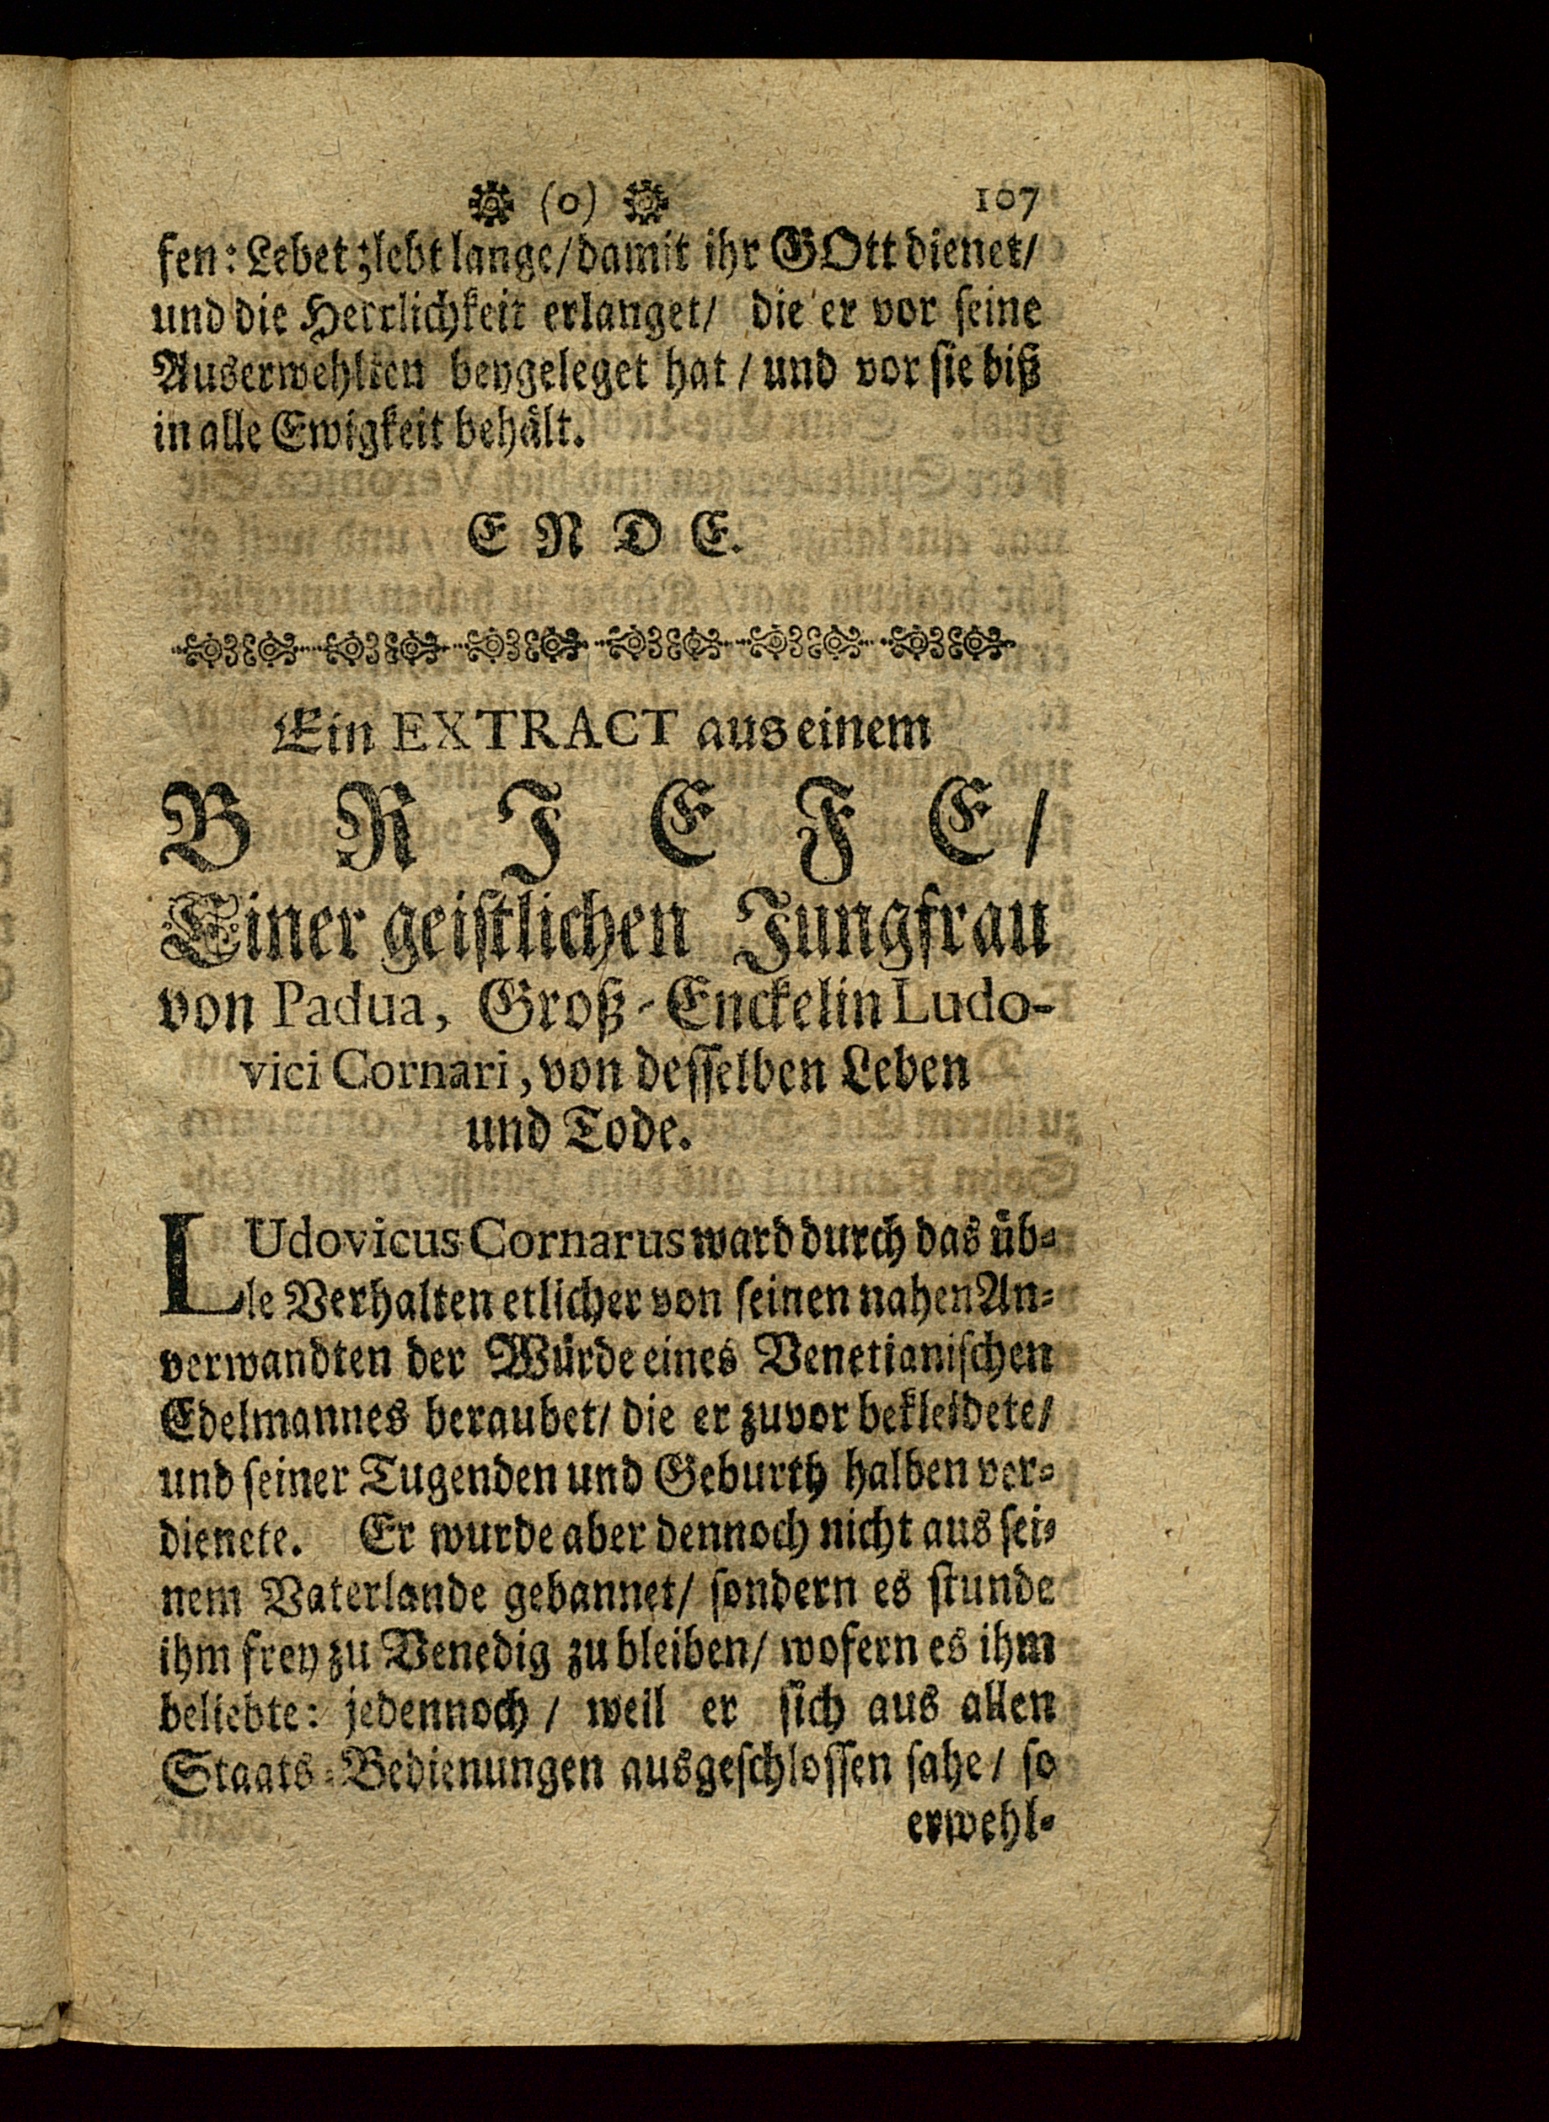 (o) 107
fen: Lebet; lebt lange/ damit ihr GOtt dienet/
und die Herrlichkeit erlanget/ die er vor seine
Auserwehlten beygeleget hat / und vor sie biß
in alle Ewigkeit behält.
E N D E.
Ein EXTRACT aus einem
B R J E F E /
Einer geistlichen Jungfrau
von Padua, Groß-Enckelin Ludo-
vici Cornari, von desselben Leben
und Tode.
LUdovicus Cornarus ward durch das üb-
le Verhalten etlicher von seinen nahen An-
verwandten der Würde eines Venetianischen
Edelmannes beraubet/ die er zuvor bekleidete/
und seiner Tugenden und Geburth halben ver-
dienete. Er wurde aber dennoch nicht aus sei-
nem Vaterlande gebannet/ sondern es stunde
ihm frey zu Venedig zu bleiben/ wofern es ihm
beliebte: jedennoch / weil er sich aus allen
Staats-Bedienungen ausgeschlossen sahe/ so
erwehl-